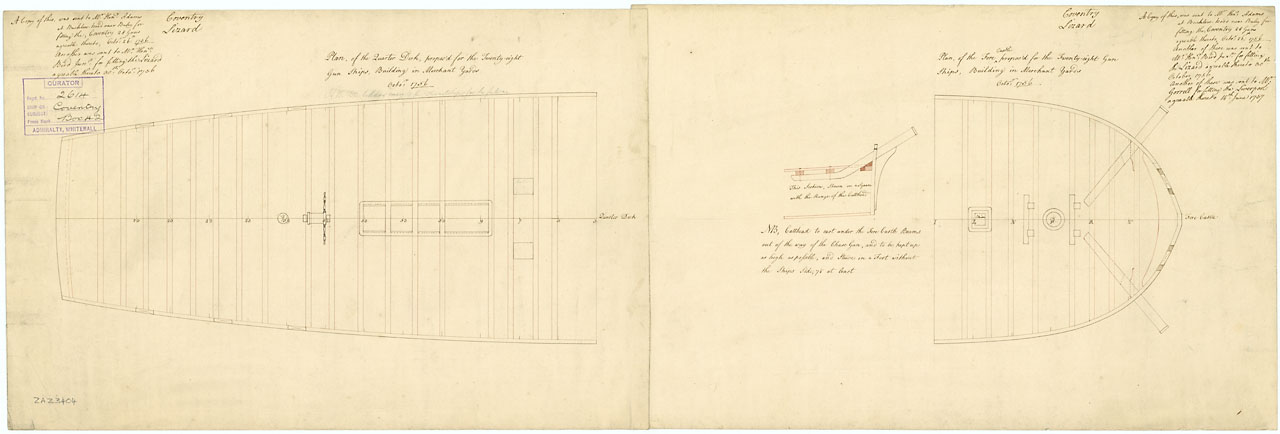 A Copy of this, was sent to Mr. Hen. Adams
at Bucklers hard near Beuly for
fitting the Coventry 28 Guns
agreeable thereto, Octo. 26th 1756
Another was sent to Mr. Hen.
Bird Junr. for fitting the Lizard
agreeable thereto 30th Octo. 1756
Coventry
Lizard
CURATOR
Regd. No. 2614
SHIP OR SUBJECT Coventry
Press Mark Box 42
ADMIRALTY, WHITEHALL
Plan, of the Quarter Deck, propos'd for the Twenty-eight
Gun Ships, Building in Merchant Yards
Octor. 1756
Quarter Deck
ZAZ3404
Coventry
Lizard
A Copy of this, was sent to Mr. Hen. Adams
at Bucklers hard near Beuly for
fitting the Coventry 28 Guns
agreeable thereto, Octo. 26th 1756
Another of these was sent to
Mr. Hen. Bird Junr. for fitting
the Lizard agreeable thereto 30th
October 1756
Another of these was sent to Mr.
Gorrell for fitting the Liverpool
agreeable thereto 16th June 1757
Plan, of the Fore Castle propos'd for the Twenty-eight Gun
Ships, Building in Merchant Yards
Octor. 1756
This Section, Shewn in a Square
with the Range of the Cathead
NB, Cathead to cast under the Fore Castle Beams
out of the way of the Chase Gun, and to be kept up
as high as possible, and Stive in a Foot without
the Ships Side, 7½ at least
Fore Castle